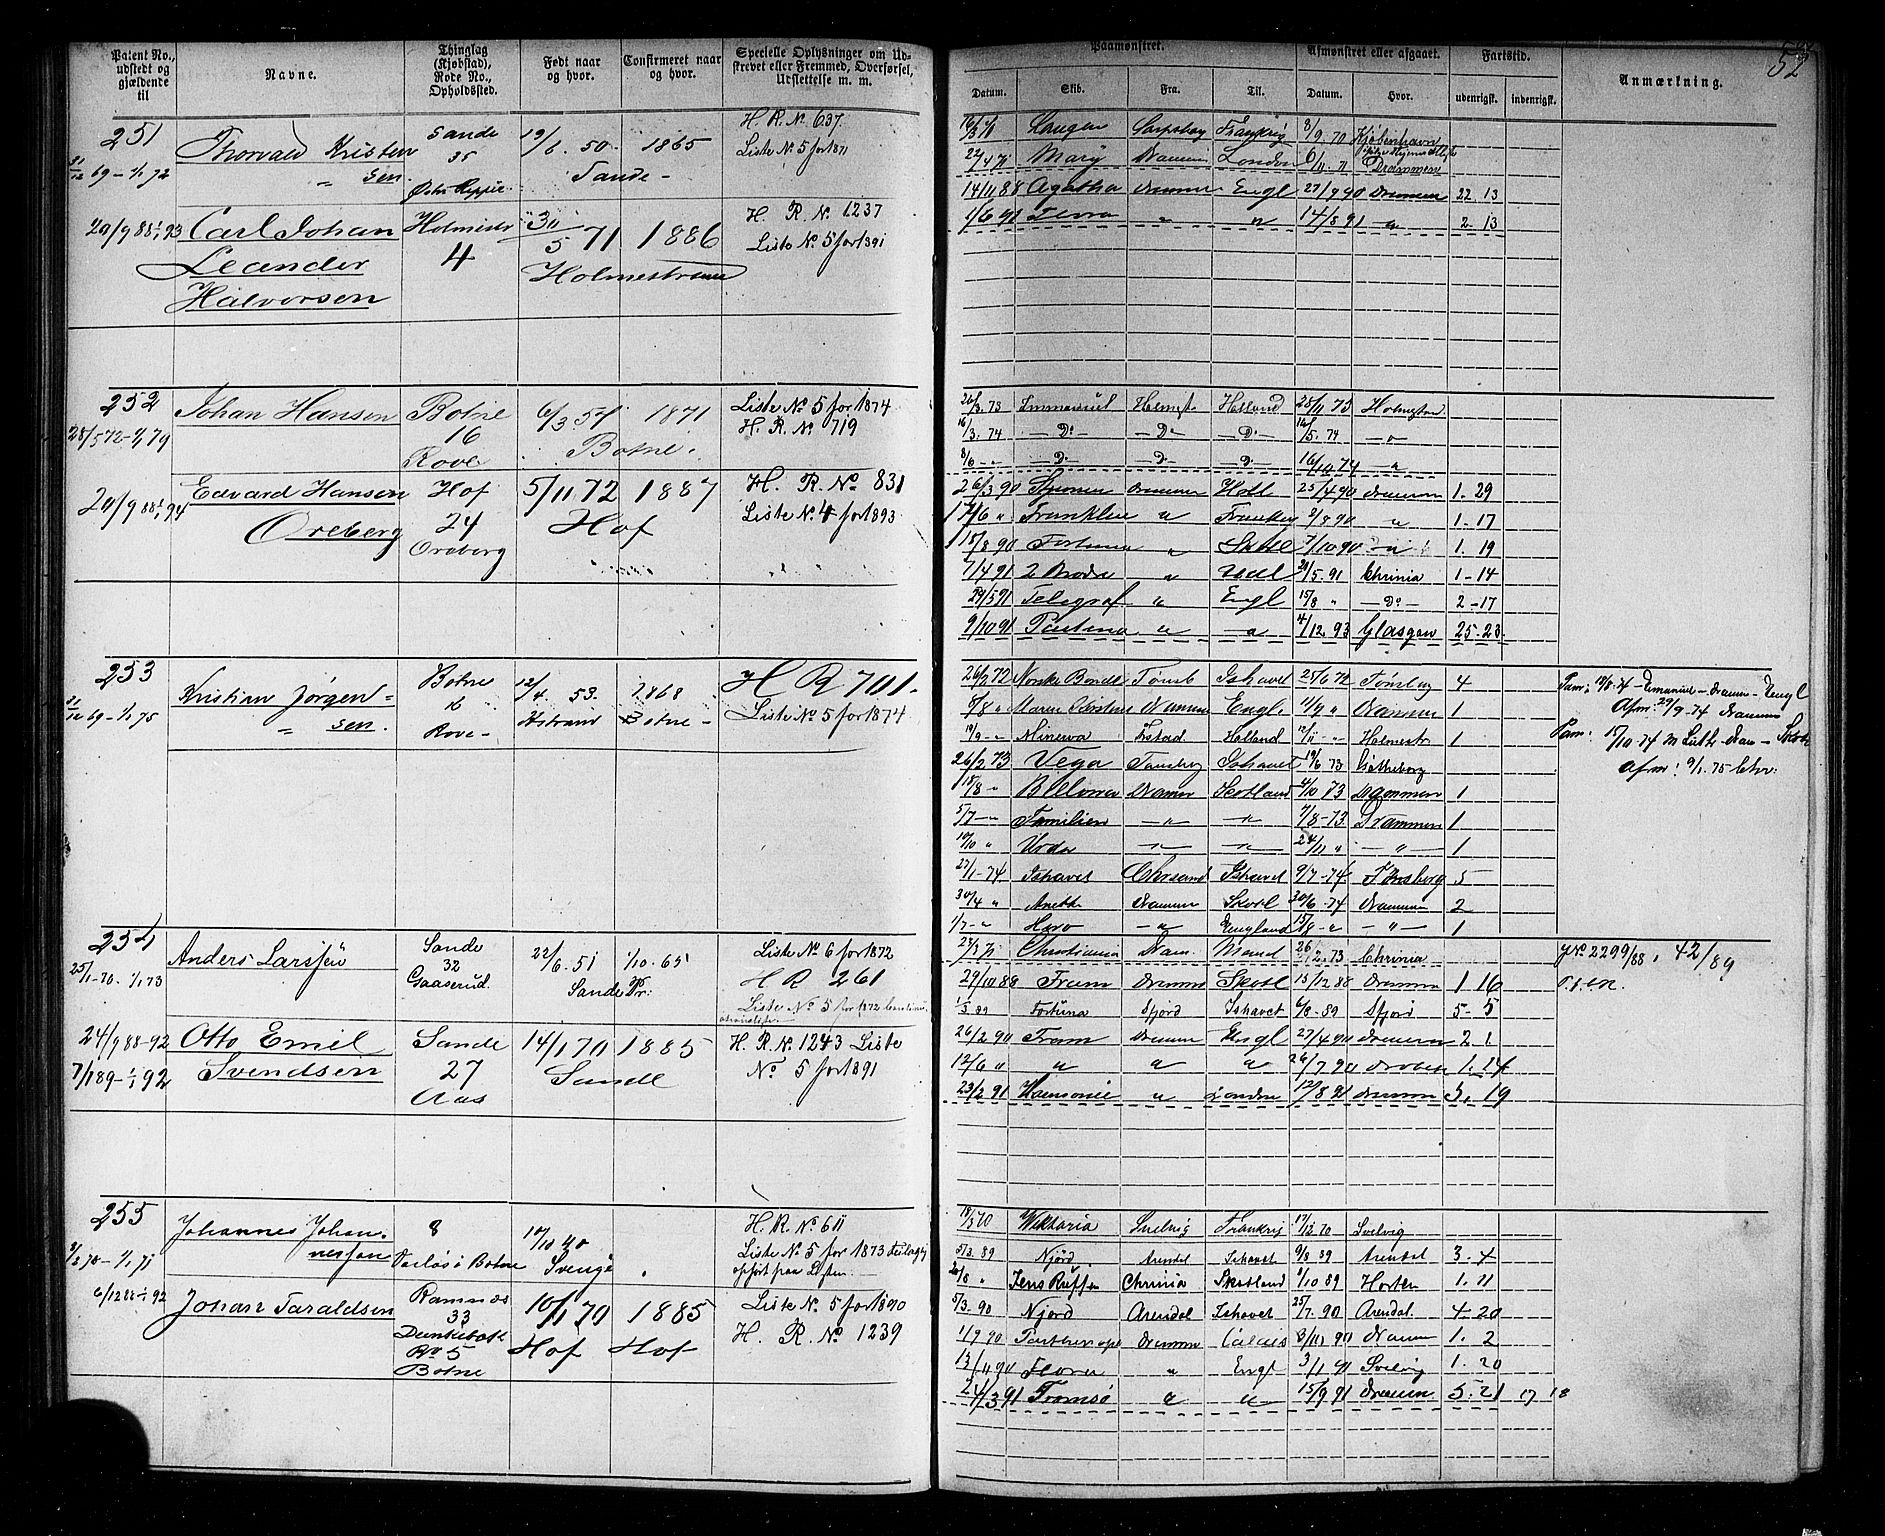 Patent No., udstedt og gjældende til
Navne.
Thinglag (Kjøbstad), Rode No., Opholdssted.
Født naar og hvor.
Confirmeret naar og hvor.
Specielle Oplysninger om Udskrevet eller Fremmed, Overførsel, Udslettelse m. m.
251
Thorvald Kristen
" sen.
31/12 69 - 1/1 72
Sande
35
50. 1865
Sande -
H. R. N. 637.
Liste No. 5 for 1871
20/9 88 - 1/1 93
Carl Johan
Leander
Halvorsen
4
30/5 71 1886
Holmestrand
H. R. No. 1237
Liste No. 5 for 1891
252
Johan Hansen
28/5 72 - 1/1 79
Botne
16
Rove
6/3 57 1871
Botne.
Liste No. 5 for 1874
H. R. No 719
20/9 88 - 1/1 94
Edvard Hansen
Oreberg
Hof
24
Oreberg
5/11 72 1887
Hof
H. R. No 831
Liste No. 4 for 1893
253
Kristian Jørgen=
" sen.
31/12 69 - 1/1 75
Botne
16
Rove -
12/4. 53. 1868
Botne -
H R 701.
Liste No. 5 for 1874
254
Anders Larssen
25/1 - 70. - 1/1 73
Sande
32
Gaaserud.
22/6. 51 1/10. 65
Sande Pr:
Liste No. 6 for 1872
H R 261
Liste No 5 for 1872
24/9 88 - 92
7/1 89 - 1/1 92
Otto Emil
Svendsen
Sande
27
Aas
14/1 70 1885
Sande
H. R. N. 1243 Liste
No. 5 for 1891
255
Johannes Johan=
nessen
8
Botne
10/10 40
H. R. No 611
Liste No. 5 for 1873
6/12 88 - 1/1 92
Johan Taraldsen
Ramnæs
33
No 5
Botne
10/1 70 1885
Hof Hof
Liste No. 5 for 1890
H. R. No. 1239
52
Paamønstret.
Afmønstret eller afgaaet.
Fartstid.
Anmærkning.
Datum. Skib. Fra. Til. Datum. Hvor. udenrigst. indenrigst.
Laugen Sarpsborg Frankrig 3/9. 70 Kjøbenhavn
22/4 71 Mary Drammen London 6/11 71 Drammen
14/11 88 Agatha Drammen Engl 27/9 90 Drammen 22. 13
1/6 91 Flora " " 14/8 91 " 2. 13
26/3. 73 Immanuel Holmst. Holland 25/11 73 Holmestrand
16/3. 74 - Do - - Do - - Do - 12/5. 74 - " -
8/6 - " - Do - - Do - Do 16/10 74 - " -
26/3 90 Drammen Holl 25/4 90 Drammen 1. 29
17/6 " Franklin " 2/8 90 " 1. 17
15/8 90 Fortuna " Skotl 7/10 90 - " - 1. 19
7/4 91 2 Brødre " 20/5. 91 Chrinia 1 - 14
29/5 91 Telegraf " Engl 15/8 " - Do - 2 - 17
9/10 91 " " 4/12. 93 Glasgow 25 - 23
26/2 72 Norske Bonde Tønsb Ishavet 25/6 72 Tønsberg 4
5/8 " Drammen Engl. 11/9 " Drammen 1
14/9 - " Minerva Holland 12/11 - " Holmestr 1
26/2 73 Vega Tønsberg Ishavet 19/6 73 Gøtheborg
18/8 " Drammen Skotland 4/10 73 Drammen 1
5/7 - " Familien - " - - " - 7/8 - 73 Drammen 1
10/10 " Urda - " - - " - 24/11 " - " - 1
27/1 - 74 Ishavet Chrsand Ishavet 9/7 - 74 Tønsberg 5
30/4 " Anette Drammen Skotl 30/6 - 74 Drammen 2
1/7 - " - " England 15/8 - " - " - 1
Paam: 12/8 - 74 - Emanuel - Dramn - Engl
Afm: 29/9 - 74 Dramm
Paam: 15/10 - 74 M Luth - Dram - Skotl
Afm: 9/1. 75 Chr:
Christiania Dram. 26/2. 73 Chrinia
29/10 88 Fram Drammn Skotl 15/12 88 Drammn 1 16
1/3 89 Fortuna Sfjord Ishavet 6/8 - 89 Sfjord 5 - 5
26/2 90 Fram Drammen Engl 27/4 90 Drammen 2. 1
12/6 " " " " 26/7 90 Drøbak 1. 14
23/2 91 Harmonie " London 12/8 91 Drammn 5. 19
JNo 2299/88. 42/89
18/3 70 Viktoria Svelvig Frankrig 17/12 70 Svelvig
5/3. 89 Njörd Arendal Ishavet 9/8 89 Arendal 3. 4
20/8 " Chrinia Skotland 1/10 89 Horten 1. 11
5/3 - 90 Njord Arendal Ishavet 25/7. 90 Arendal. 4. 20
1/9 90 Parthenope Drammn Calais 3/11 90 Dramm 1. 2
13/11 90 Flora " Engl 3/1 91 Svelvig 1. 20
24/3 91 Tromsø " " 15/9 91 Drammn 5. 21 17 18